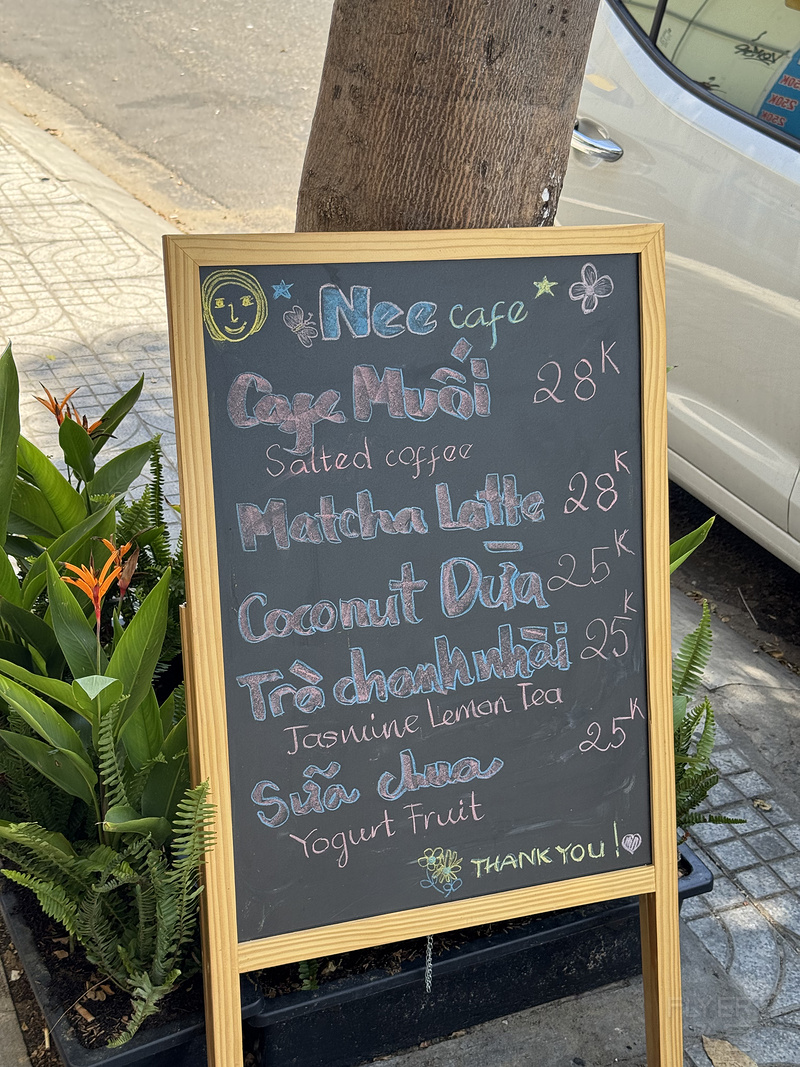 Nee cafe
Cafe Muối 28K
Salted coffee
Matcha Latte 28K
Coconut Dừa 25K
Trà chanh nhài 25K
Jasmine Lemon Tea
Sữa chua 25K
Yogurt Fruit
THANK YOU!